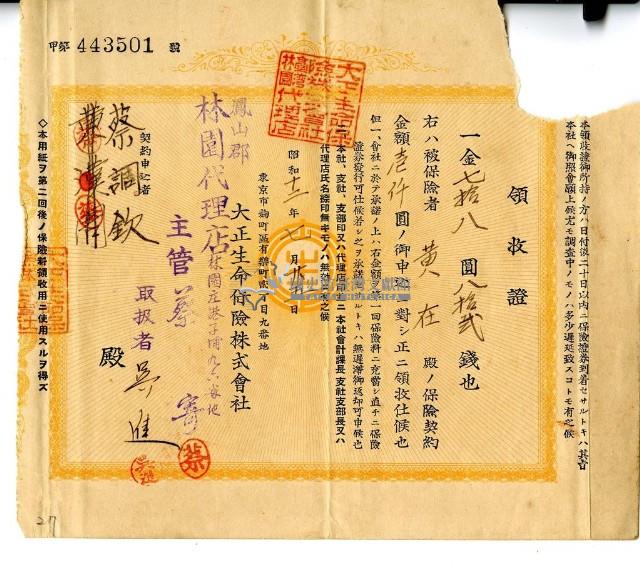 甲第 443501 號
本領收證御所持ノ方ハ日付後二十日以内ニ保險證券到着セサルトキハ其旨
本社ヘ御照會願上候尤モ調査中ノモノハ多少遲延致スコトモ有之候
領收證
一金七拾八圓八拾貳錢也
右ハ被保險者 黄在 殿ノ保險契約
金額壱仟圓ノ御申込ニ對シ正ニ領收仕候也
但一、會社ニ於テ承諾ノ上ハ右金額ヲ第一回保險料ニ充當シ直チニ保險
證券發行可仕候若シ之ヲ承諾セサルトキハ無遲滯御返却可申候也
二、本社、支社、支部印又ハ代理店印竝ニ本社會計課長、支社支部長又ハ
代理店氏名捺印無キモノハ無效ニ有之候
昭和十二年七月 日
東京市麹町區有樂町 丁目九番地
大正生命保險株式會社
鳳山郡
林園代理店
林園庄港子埔九六番地
主管 蔡
取扱者 吳進
契約申込者
蔡調欽
殿
◇本用紙ヲ第二回後ノ保險料領收用ニ使用スルヲ得ズ
大正生命保
險株式會社
林園代理店
蔡
27